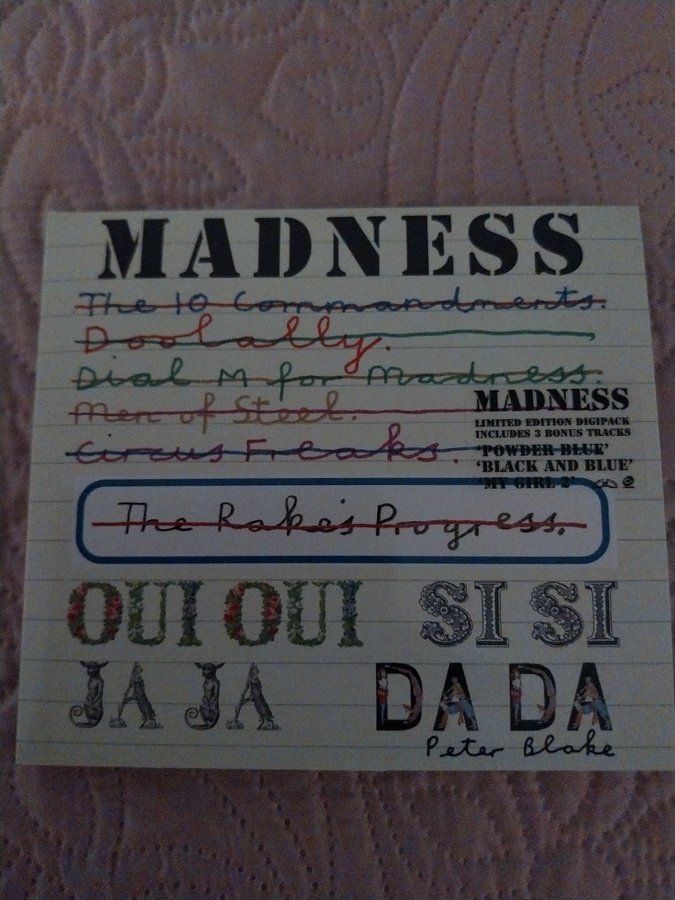 MADNESS
The 10 Commandments.
Doolally.
Dial M for Madness.
Men of Steel.
Circus Freaks.
MADNESS
LIMITED EDITION DIGIPACK
INCLUDES 3 BONUS TRACKS
'POWDER BLUE'
'BLACK AND BLUE'
'MY GIRL 2'
The Rake's Progress.
OUI OUI SI SI
JA JA DA DA
Peter Blake